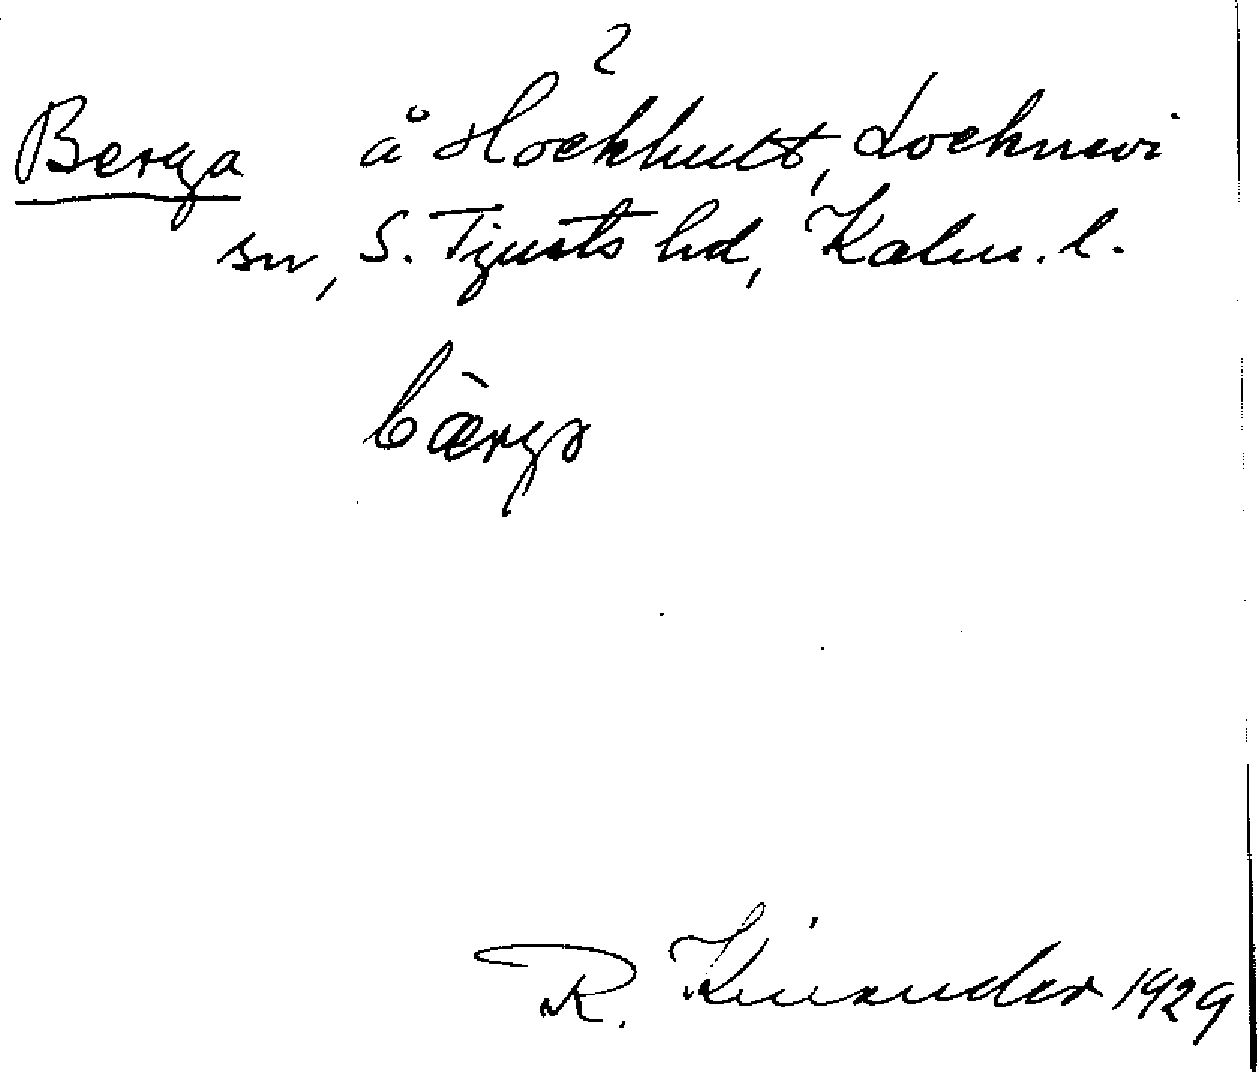 2
Berga å Hockhult, Locknevi
sn, S. Tjusts hd, Kalm. l.
bærgɑ
R. Kinander 1929